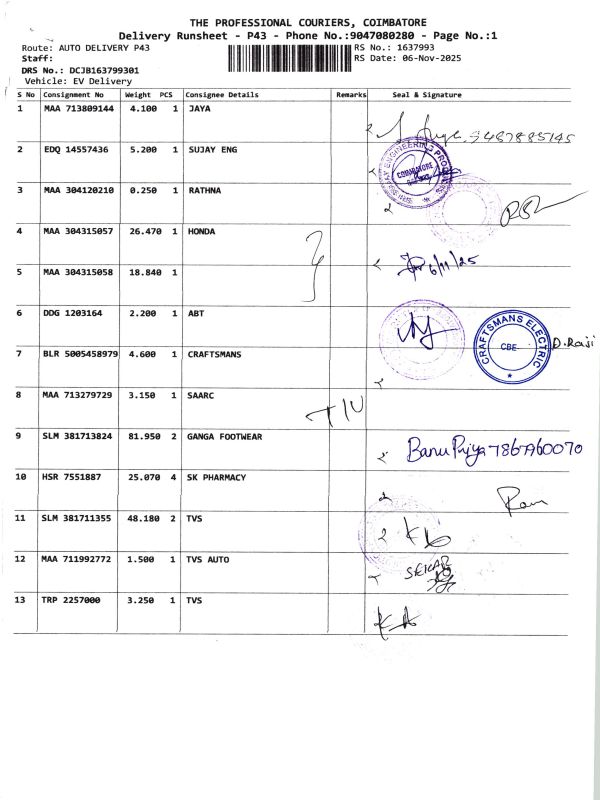 THE PROFESSIONAL COURIERS, COIMBATORE
Delivery Runsheet - P43 - Phone No.:9047080280 - Page No.:1
Route: AUTO DELIVERY P43
RS No.: 1637993
Staff:
RS Date: 06-Nov-2025
DRS No.: DCJB163799301
Vehicle: EV Delivery
S No Consignment No Weight PCS Consignee Details Remarks Seal & Signature
1 MAA 713809144 4.100 1 JAYA
2 EDQ 14557436 5.200 1 SUJAY ENG
COIMBATORE
3 MAA 304120210 0.250 1 RATHNA
4 MAA 304315057 26.470 1 HONDA
5 MAA 304315058 18.840 1
6/11/25
6 DDG 1203164 2.200 1 ABT
CRAFTSMANS ELECTRIC
CBE
D.Raji
7 BLR 5005458979 4.600 1 CRAFTSMANS
8 MAA 713279729 3.150 1 SAARC
9 SLM 381713824 81.950 2 GANGA FOOTWEAR
Banu Priya
10 HSR 7551887 25.070 4 SK PHARMACY
Ram
11 SLM 381711355 48.180 2 TVS
12 MAA 711992772 1.500 1 TVS AUTO
SEKAR
13 TRP 2257000 3.250 1 TVS